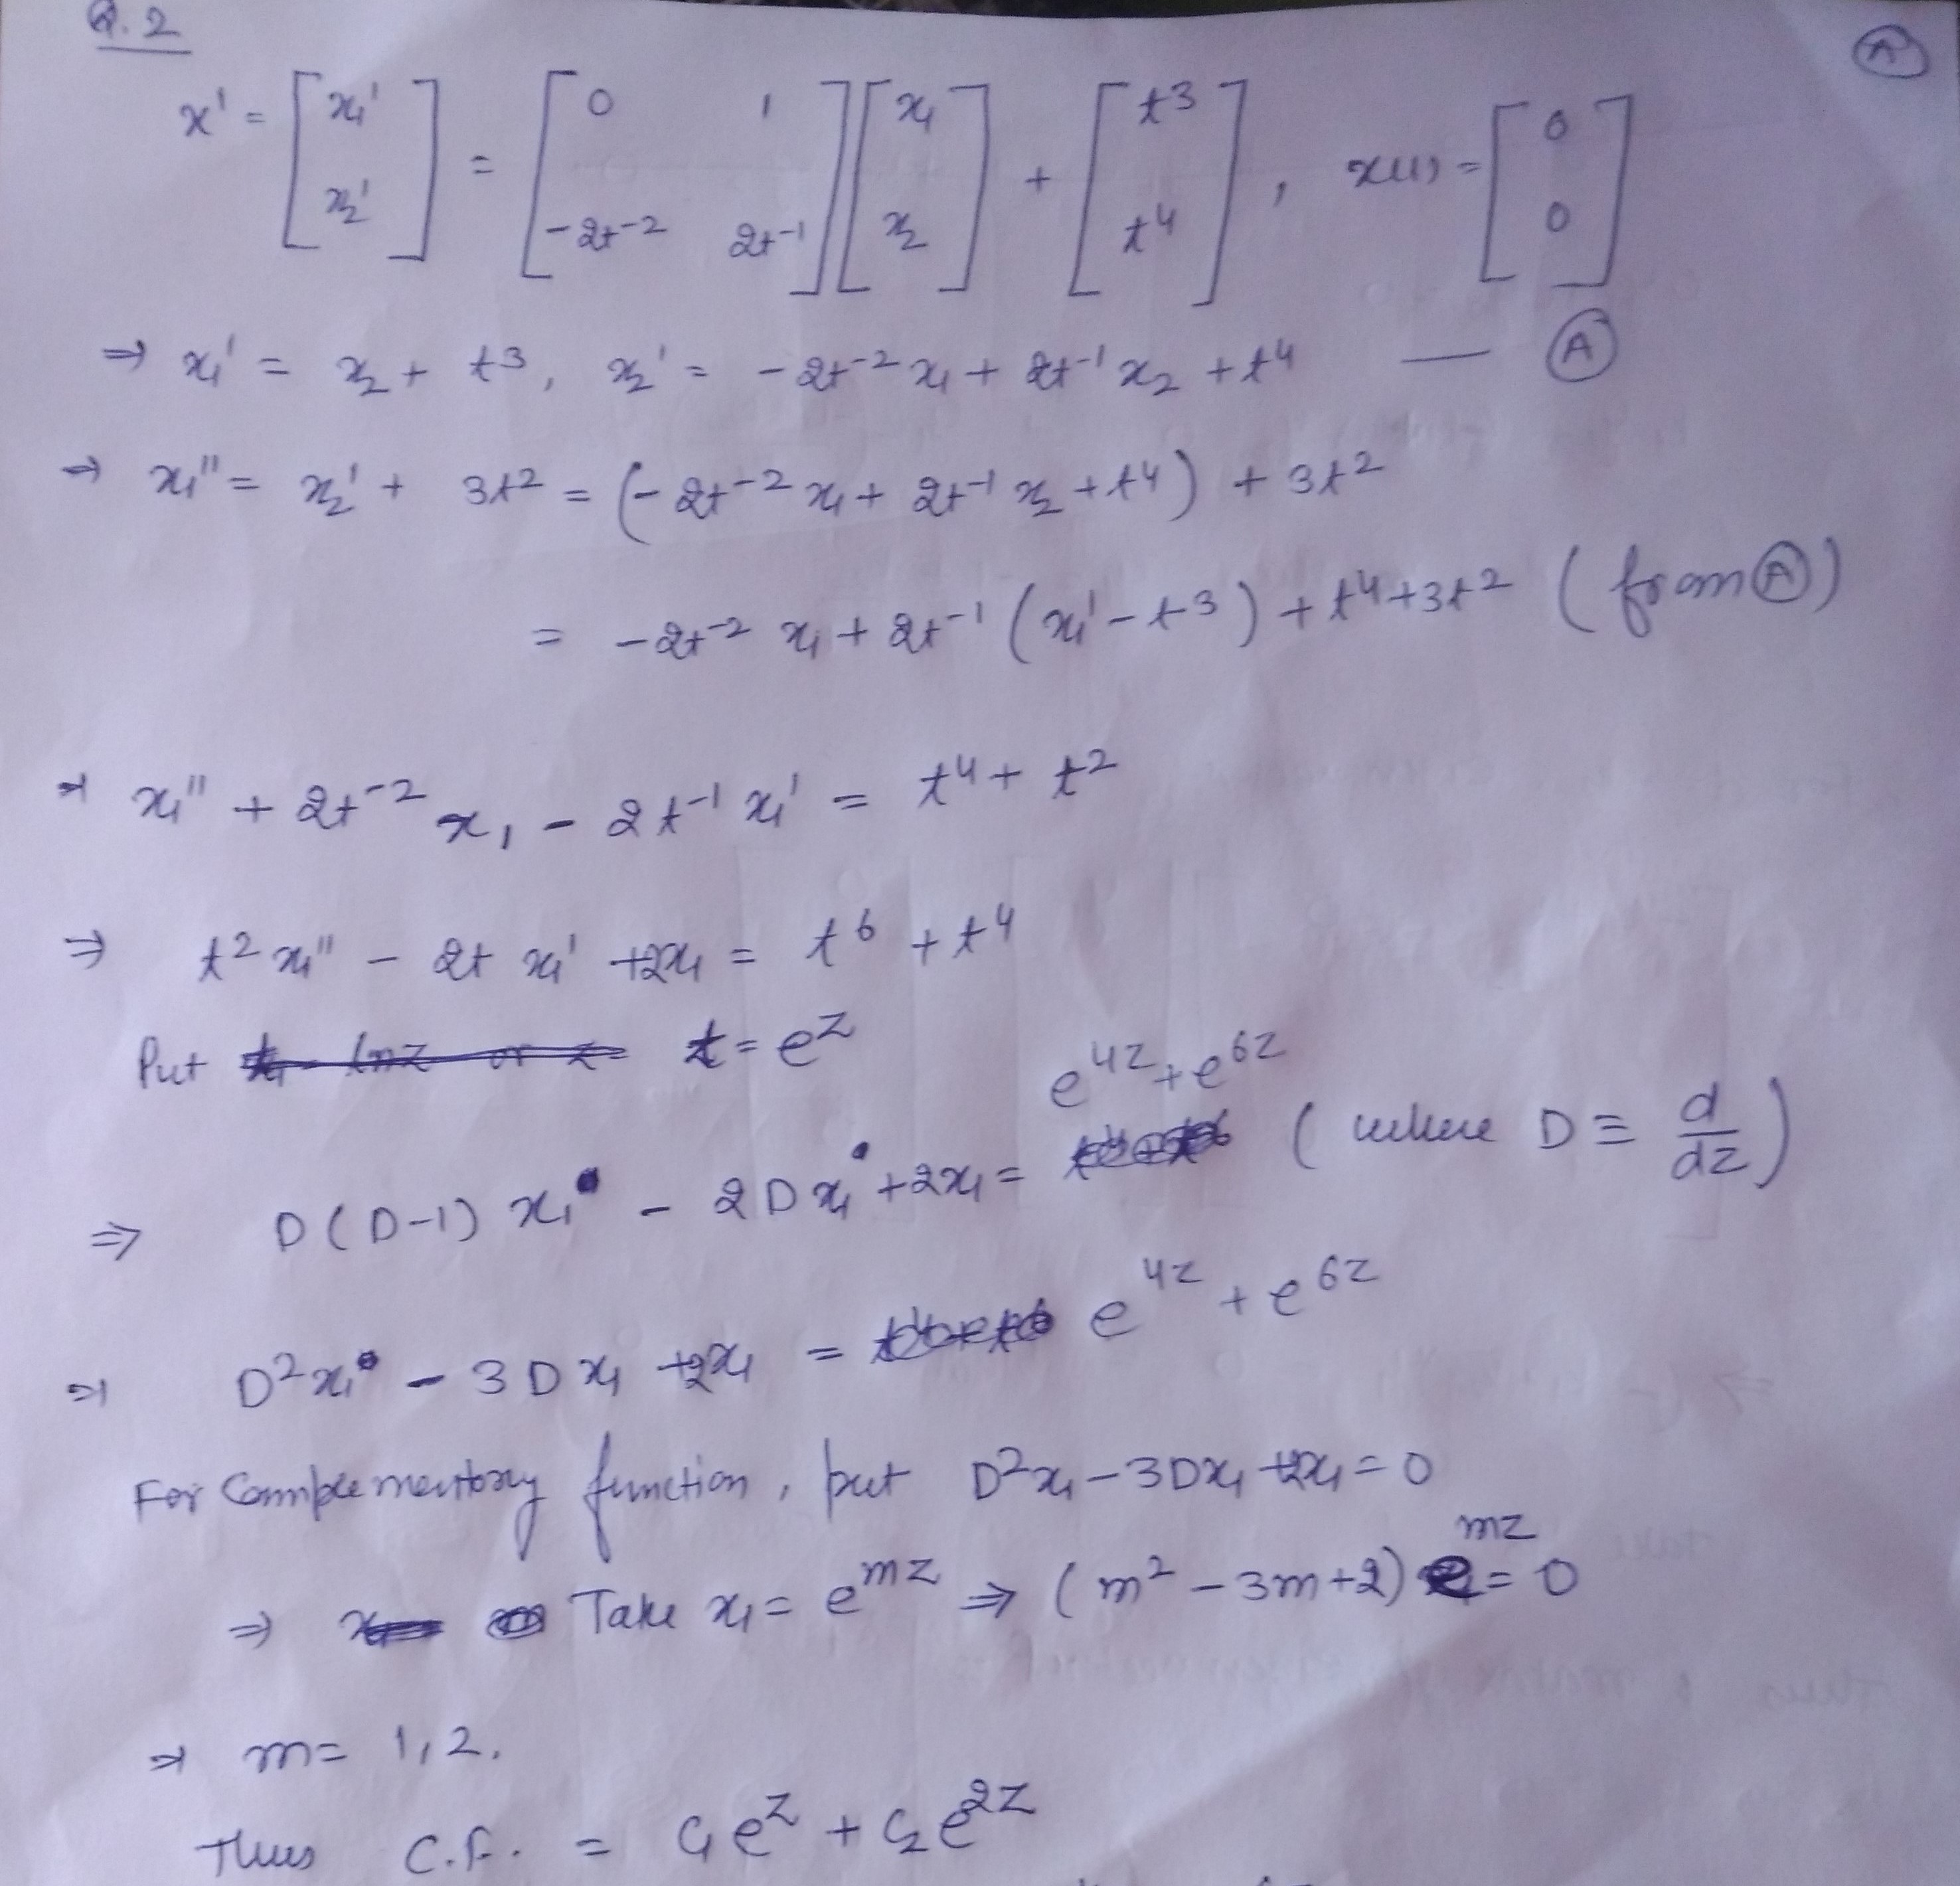 Q. 2
(A)
x' = [x₁' x₂'] = [0 1 -2t⁻² 2t⁻¹] [x₁ x₂] + [t³ t⁴], x(1) = [0 0]
⇒ x₁' = x₂ + t³, x₂' = -2t⁻² x₁ + 2t⁻¹ x₂ + t⁴ — (A)
⇒ x₁'' = x₂' + 3t² = (-2t⁻² x₁ + 2t⁻¹ x₂ + t⁴) + 3t²
= -2t⁻² x₁ + 2t⁻¹ (x₁' - t³) + t⁴ + 3t² (from (A))
⇒ x₁'' + 2t⁻² x₁ - 2t⁻¹ x₁' = t⁴ + t²
⇒ t² x₁'' - 2t x₁' + 2x₁ = t⁶ + t⁴
Put t = e^z
⇒ D(D-1) x₁ - 2D x₁ + 2x₁ = e^4z + e^6z (where D ≡ d/dz)
⇒ D² x₁ - 3D x₁ + 2x₁ = e^4z + e^6z
For Complementary function, put D²x₁ - 3Dx₁ + 2x₁ = 0
⇒ Take x₁ = e^mz ⇒ (m² - 3m + 2) e^mz = 0
⇒ m = 1, 2.
Thus C.F. = C₁e^z + C₂e^2z